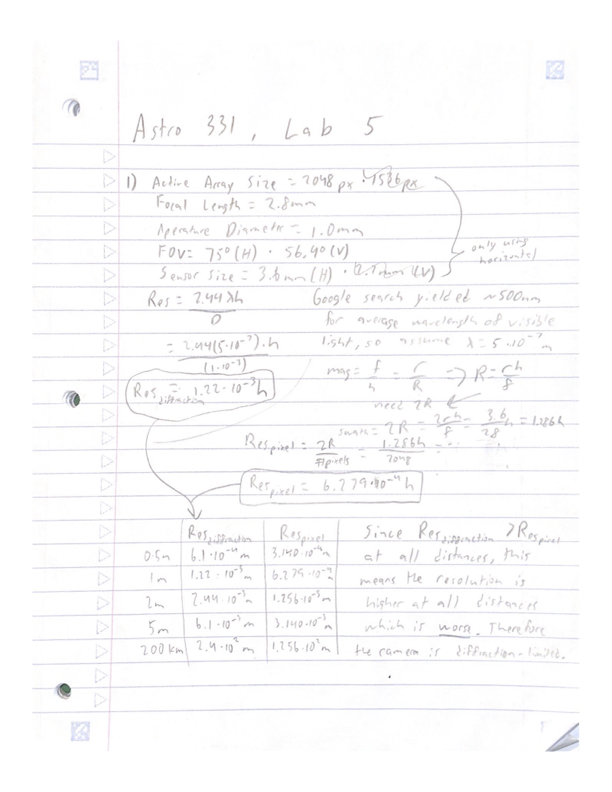 Astro 331, Lab 5
1) Active Array Size = 2048 px · 1536 px
Focal Length = 2.8mm
Aperature Diameter = 1.0mm
FOV = 75° (H) · 56.4° (V)
only using horizontal
Sensor Size = 3.6mm (H) · 2.7mm (V)
Res = 2.44 λh / D
Google search yielded ~500nm
for average wavelength of visible
= 2.44(5·10⁻⁷)·h / (1·10⁻³)
light, so assume λ = 5·10⁻⁷ m
mag = f/h = r/R => R = rh/f
Res diffraction = 1.22·10⁻³ h
need 2R
swath = 2R = 2rh/f = 3.6/2.8 h = 1.286h
Res pixel = 2R / #pixels = 1.286h / 2048
Res pixel = 6.279·10⁻⁴ h
Res diffraction Res pixel
0.5m 6.1·10⁻⁴ m 3.140·10⁻⁴ m
1m 1.22·10⁻³ m 6.279·10⁻⁴ m
2m 2.44·10⁻³ m 1.256·10⁻³ m
5m 6.1·10⁻³ m 3.140·10⁻³ m
200 km 2.4·10² m 1.256·10² m
Since Res diffraction > Res pixel
at all distances, this
means the resolution is
higher at all distances
which is worse. Therefore
the camera is diffraction-limited.